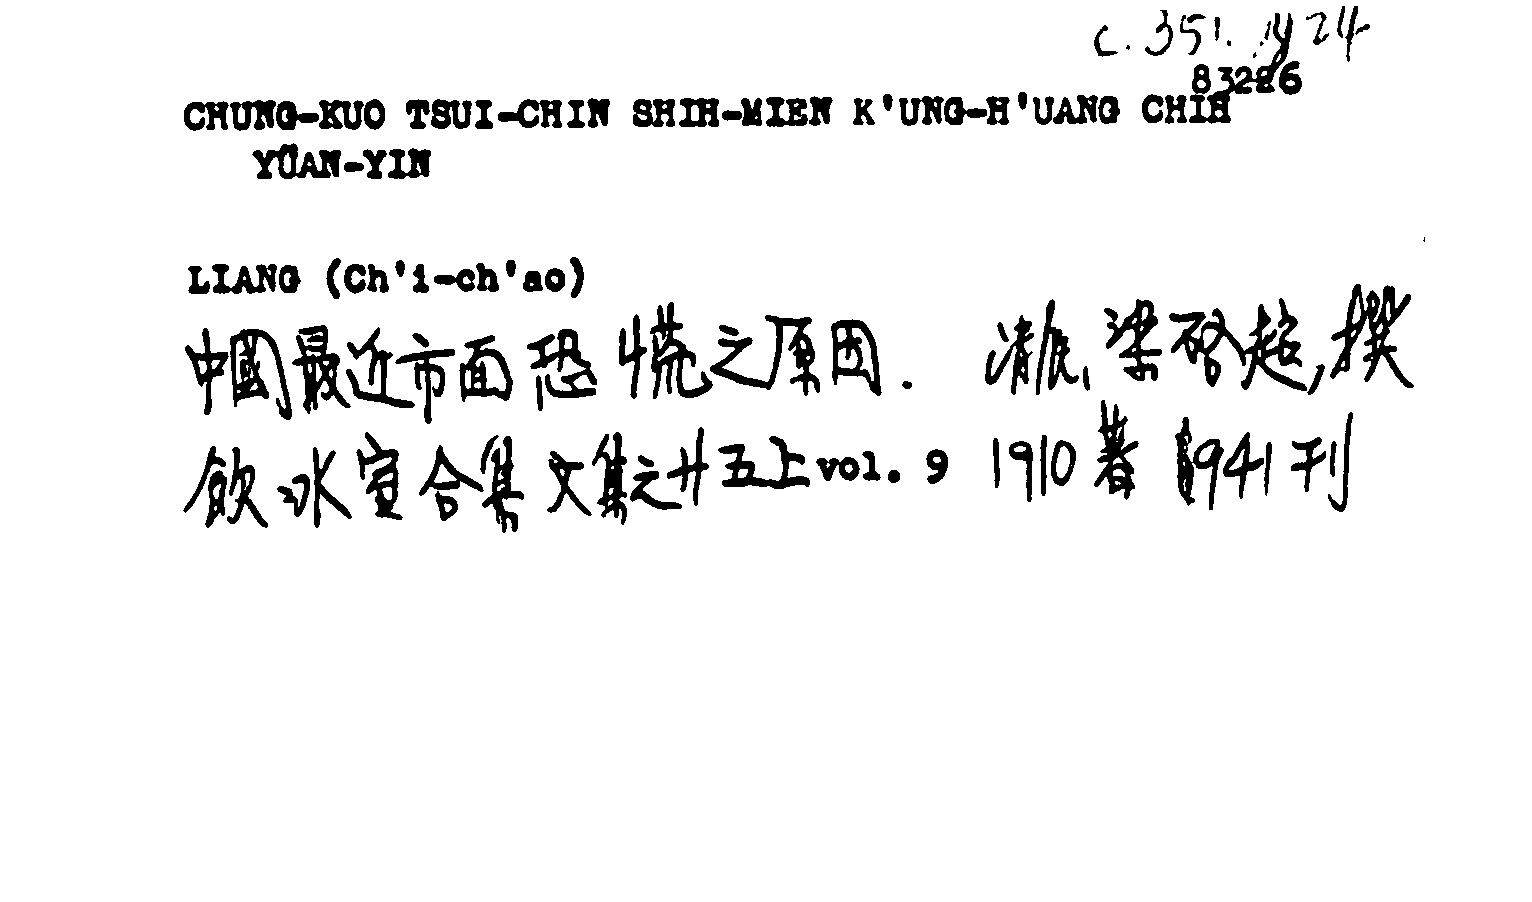 c. 351. y 24
83226
CHUNG-KUO TSUI-CHIN SHIH-MIEN K'UNG-H'UANG CHIH
YÜAN-YIN
LIANG (Ch'i-ch'ao)
中國最近市面恐慌之原因. 清, 梁啓超, 撰
飲冰室合集文集之廿五上 vol. 9 1910著 1941刊